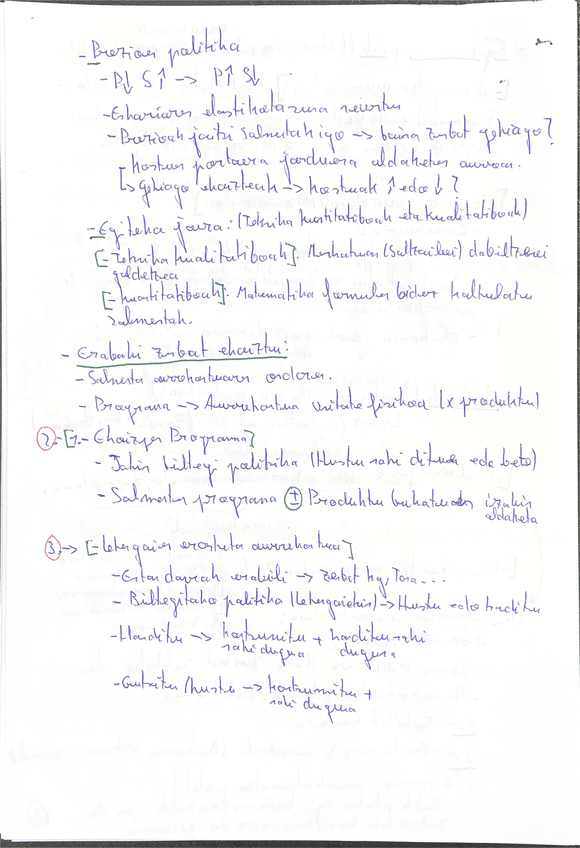 - Prezioen politika
- P↓ S↑ → P↑ S↓
- Eskariaren elastikotasuna neurtu
- Prezioak jaitsi salmentak igo → baina zenbat gehiago?
- Kostuen portaera jarduera aldaketen aurrean.
↳ Gehiago ekoizteak → kostuak ↑ edo ↓ ?
- Egiteko era: (Teknika kuantitatiboak eta kualitatiboak)
[- Teknika kualitatiboak]. Merkatuan (Saltzaileei) dabiltzenei galdetzea
[- Kuantitatiboak]. Matematika formulen bidez kalkulatu salmentak.
- Erabaki zenbat ekoiztu:
- Salmenta aurrekontuaren ondoren.
- Programa → Aurrekontua unitate fisikoa (x produktu)
2.- [1.- Ekoizpen Programa]
- Jakin biltegi politika (Hustu nahi dituen edo bete)
- Salmenten programa ± Produktu bukatuen izakin aldaketa
3. → [- Lehengaien erosketa aurrekontua]
- Estandarrak erabili → Zenbat kg, Tona ...
- Biltegitako politika (Lehengaiekin) → Hustu edo handitu
- Handitu → kontsumitu nahi duguna + handitu nahi duguna
- Gutxitu/hustu → kontsumitu nahi duguna +